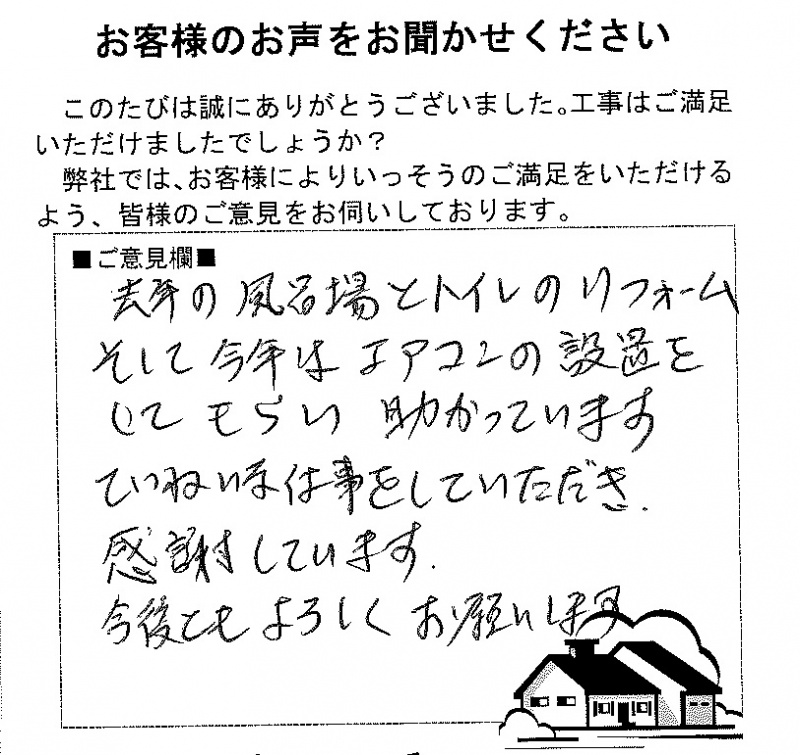 お客様のお声をお聞かせください
このたびは誠にありがとうございました。工事はご満足
いただけましたでしょうか？
弊社では、お客様によりいっそうのご満足をいただける
よう、皆様のご意見をお伺いしております。
■ご意見欄■
去年の風呂場とトイレのリフォーム
そして今年はエアコンの設置を
してもらい 助かっています
ていねいな仕事をしていただき、
感謝しています。
今後ともよろしくお願いします